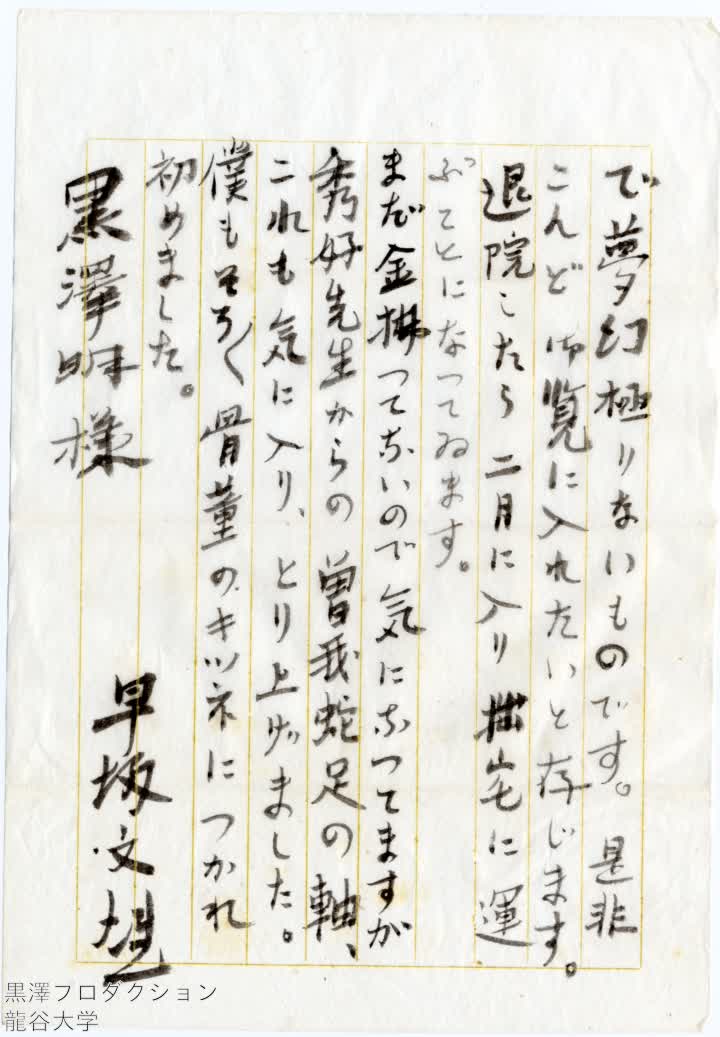 で夢幻極りないものです。是非
こんど御覧に入れたいと存じます。
退院したら二月に入り拙宅に運
ぶことになつてゐます。
まだ金拂つてないので気になつてますが
秀好先生からの曽我蛇足の軸、
これも気に入り、とり上げました。
僕もそろ〳〵骨董のキツネにつかれ
初めました。
早坂文雄
黒澤明様
黒澤プロダクション
龍谷大学